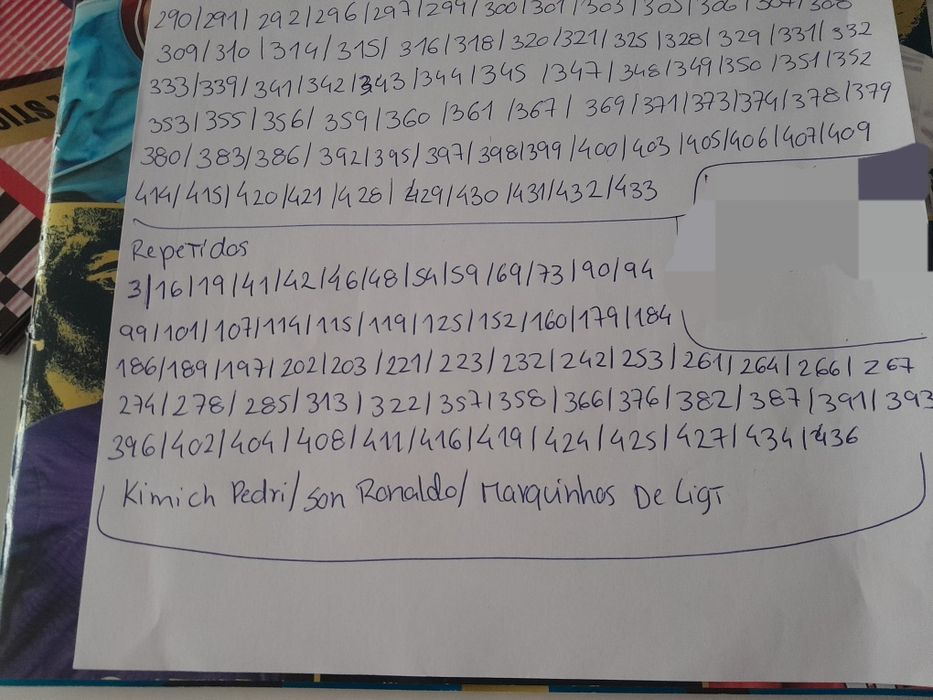 290/291/292/296/297/299/300/301/303/305/306/307/308
309/310/314/315/316/318/320/321/325/328/329/331/332
333/339/341/342/343/344/345/347/348/349/350/351/352
353/355/356/359/360/361/367/369/371/373/374/378/379
380/383/386/392/395/397/398/399/400/403/405/406/407/409
414/415/420/421/428/429/430/431/432/433
Repetidos
3/16/19/41/42/46/48/54/59/69/73/90/94
99/101/107/114/115/119/125/152/160/179/184
186/189/197/202/203/221/223/232/242/253/261/264/266/267
274/278/285/313/322/357/358/366/376/382/387/391/393
396/402/404/408/411/416/419/424/425/427/434/436
Kimich Pedri/Son Ronaldo/Marquinhos De Ligt
STIC